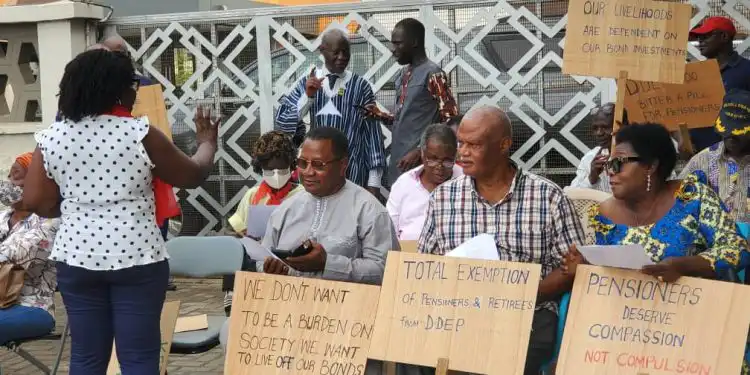 OUR LIVELIHOODS
ARE DEPENDENT ON
OUR BOND INVESTMENTS
BITTER A PILL
FOR PENSIONERS
WE DONT WANT
TO BE A BURDEN ON
SOCIETY WE WANT
TO LIVE OFF OUR BONDS
TOTAL EXEMPTION
OF PENSIONERS & RETIREES
FROM D-DEP
PENSIONERS
DESERVE
COMPASSION
NOT COMPULSION